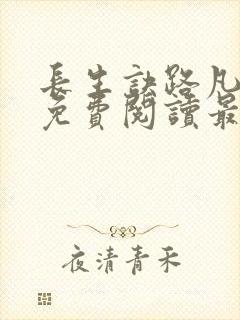 長生訣路凡
免費閱讀最
夜清青禾